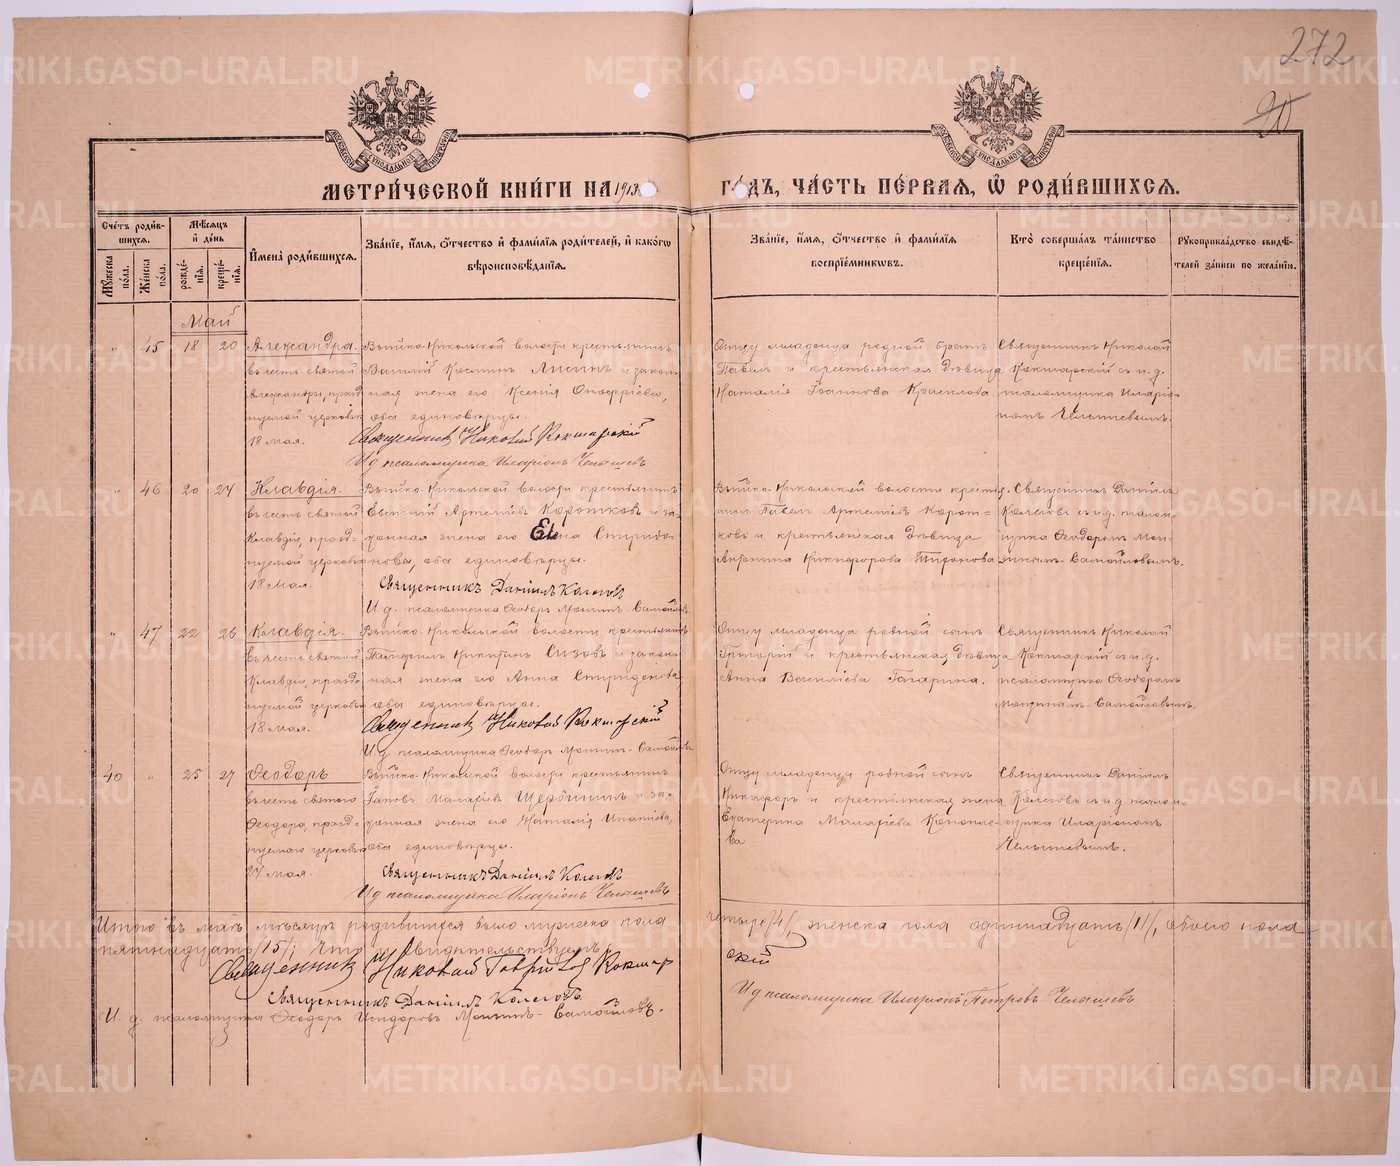 272
20
МЕТРИ́ЧЕСКОЙ КНИ́ГИ НА 1913 ГО́ДЪ, ЧА́СТЬ ПЕ́РВАЯ, Ѽ РОДИ́ВШИХСЯ.
Сче́тъ роди́вшихся.
Мꙋ́жеска по́ла.
Же́нска по́ла.
Мѣ́сяцъ и де́нь
рожде́нїя.
креще́нїя.
И҆мена̀ роди́вшихся.
Зва́нїе, и҆́мя, ѻ҆́тчество и҆ фами́лїя роди́телей, и҆ како́гѡ вѣроисповѣ́данїя.
Зва́нїе, и҆́мя, ѻ҆́тчество и҆ фами́лїя воспрїе́мникѡвъ.
Кто̀ соверша́лъ та́инство креще́нїя.
Рꙋкоприкла́дство свидѣ́телей за́писи по жела́нїю.
Май
" 45 18 20 Александра.
въ честь святой
Александры, празд
нуемой церковью
18 мая.
Выйско-Никольской волости крестьянинъ
Василій Космин Лисинъ и закон
ная жена его Ксенія Онофріева,
оба единовѣрцы.
Священникъ Николай Кокшарскій
И д псаломщика Иларіонъ Челышевъ
Отцу младенца родной братъ
Павелъ и крестьянская дѣвица
Наталія Іоаннова Крашлова.
Священникъ Николай
Кокшарскій съ и. д.
псаломщика Иларіо-
номъ Челышевымъ.
" 46 20 24 Клавдія.
въ честь святой
Клавдіи, празд-
нуемой церковью
18 мая.
Выйско-Никольской волости крестьянинъ
Евгеній Артеміевъ Коротковъ и за-
конная жена его Елена Спиридо-
нова, оба единовѣрцы.
Священникъ Даніилъ Колеговъ
И. д. псаломщика Ѳеодоръ Монтин-Самойловъ.
Выйско-Никольской волости крестья-
нинъ Павелъ Артеміевъ Корот-
ковъ и крестьянская дѣвица
Антонина Никифорова
Священникъ Даніилъ
Колеговъ съ и. д. псалом-
щика Ѳеодоромъ Мон-
тинымъ-Самойловымъ.
" 47 22 26 Клавдія.
въ честь святой
Клавдіи, празд-
нуемой церковью
18 мая.
Выйско-Никольской волости крестьянинъ
Памфилъ Никитинъ Сизовъ и закон-
ная жена его Анна Спиридонова,
оба единовѣрцы.
Священникъ Николай Кокшарскій
И. д. псаломщика Ѳеодоръ Монтин-Самойловъ
Отцу младенца родной сынъ
Григорій и крестьянская дѣвица
Анна Василіева Гагарина.
Священникъ Николай
Кокшарскій съ и. д.
псаломщика Ѳеодоромъ
Монтинымъ-Самойловымъ.
40 " 25 27 Ѳеодоръ
въ честь святого
Ѳеодора, празд-
нуемаго церковью
27 мая.
Выйско-Никольской волости крестьянинъ
Іаковъ Малахіевъ Щербининъ и за-
конная жена его Наталія Ипатіева,
оба единовѣрцы.
Священникъ Даніилъ Колеговъ
И д псаломщика Иларіонъ Челышевъ
Отцу младенца родной сынъ
Никифоръ и крестьянская жена
Екатерина Малахіева Конопле-
ва
Священникъ Даніилъ
Колеговъ съ и. д. псалом-
щика Иларіономъ
Челышевымъ.
Итого въ маѣ мѣсяцѣ родившихся было мужеска пола четыре /4/, женска пола одиннадцать /11/, обоего пола
пятнадцать /15/; Что и свидѣтельствуемъ
Священникъ Николай Гавріиловъ Кокшарскій
Священникъ Даніилъ Колеговъ
И д псаломщика Иларіонъ Петровъ Челышевъ
И. д. псаломщика Ѳеодоръ Исидоровъ Монтин-Самойловъ.